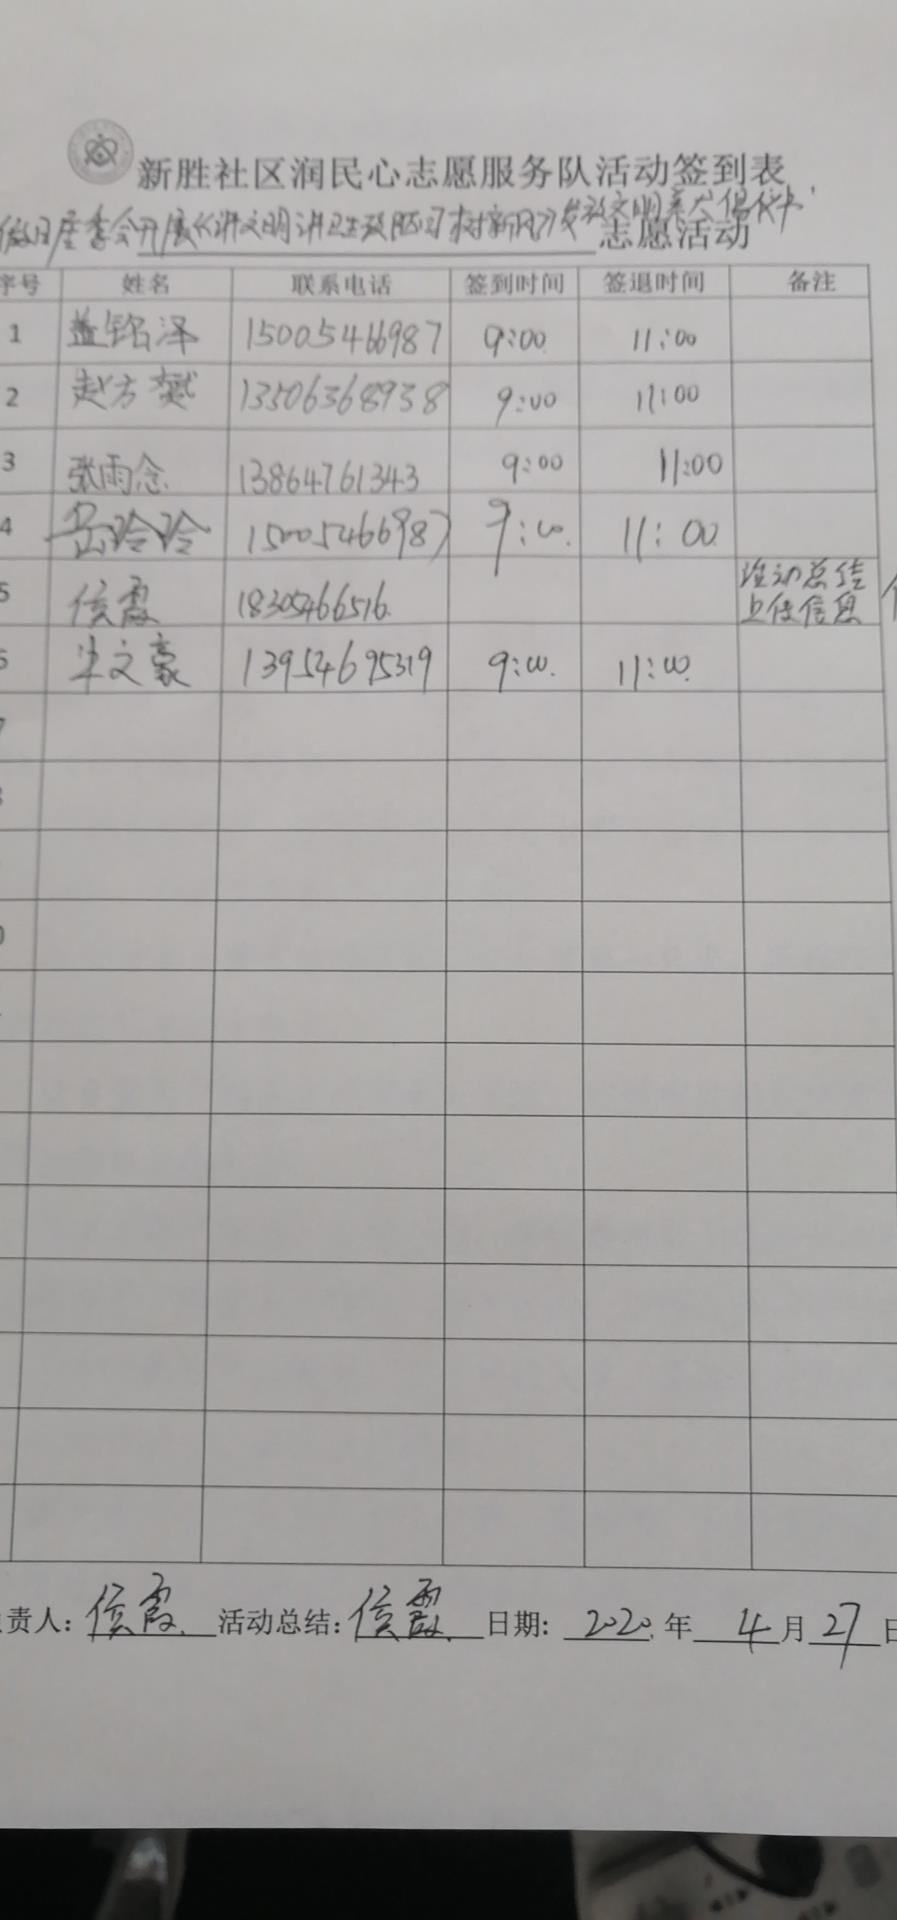 新胜社区润民心志愿服务队活动签到表
居委会开展《讲文明讲卫生 树新风》发放文明养犬倡议书 志愿活动
序号 姓名 联系电话 签到时间 签退时间 备注
1 盖铭泽 15005466987 9:00 11:00
2 赵方 13506368938 9:00 11:00
3 张雨念 13864761343 9:00 11:00
4 岳玲玲 15005466987 9:00. 11:00.
5 侯霞 18305466516. 活动总结
上传信息
6 文豪 13954695319 9:00. 11:00.
负责人: 侯霞. 活动总结: 侯霞. 日期: 2020. 年 4 月 27 日